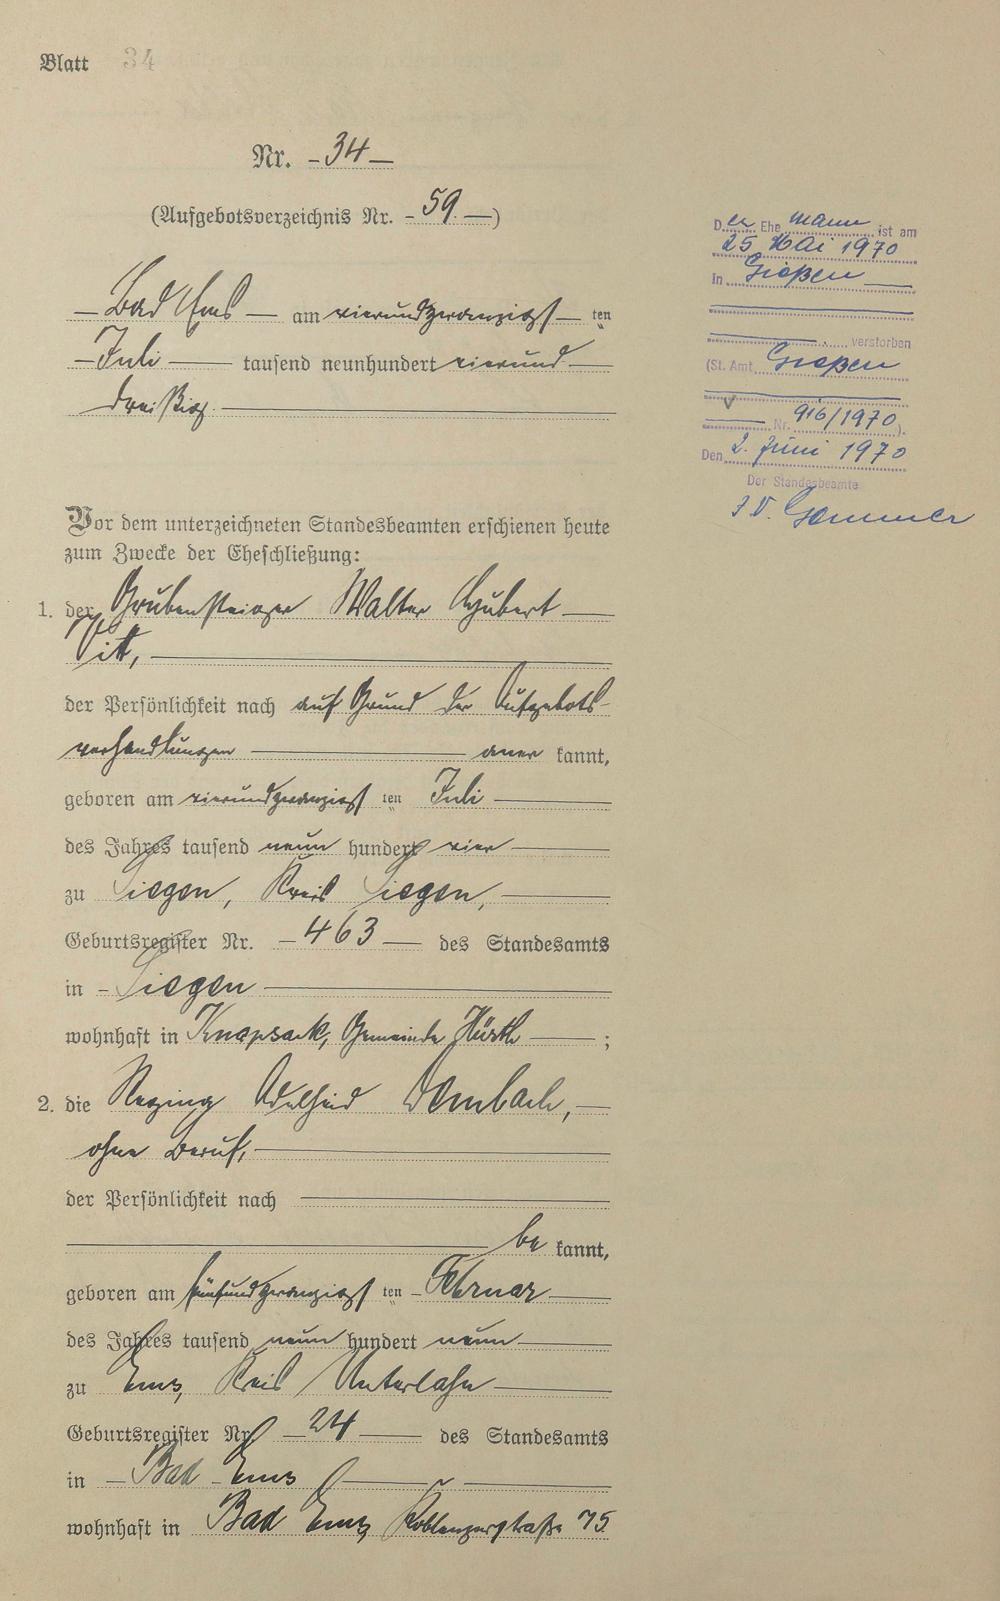 Blatt 34
Nr. 34
(Aufgebotsverzeichnis Nr. 59)
Bad Ems am vierundzwanzigsten
Juli tausend neunhundert vierund
dreißig.
Vor dem unterzeichneten Standesbeamten erschienen heute
zum Zwecke der Eheschließung:
1. der Grubensteiger Walter Hubert
Vitt,
der Persönlichkeit nach auf Grund der Aufgebots-
verhandlungen anerkannt,
geboren am vierundzwanzigsten Juli
des Jahres tausend neun hundert vier
zu Siegen, Kreis Siegen,
Geburtsregister Nr. 463 des Standesamts
in Siegen
wohnhaft in Knapsack, Gemeinde Hürth;
2. die Adelheid Dombach,
ohne Beruf,
der Persönlichkeit nach
bekannt,
geboren am fünfundzwanzigsten Februar
des Jahres tausend neun hundert neun
zu Ems, Kreis Unterlahn
Geburtsregister Nr. 24 des Standesamts
in Bad Ems
wohnhaft in Bad Ems, Koblenzerstraße 75.
Der Ehemann ist am
25. Mai 1970
in Gießen
verstorben
(St. Amt Gießen
Nr. 916/1970).
Den 2. Juni 1970
Der Standesbeamte
I.V. Gemmer